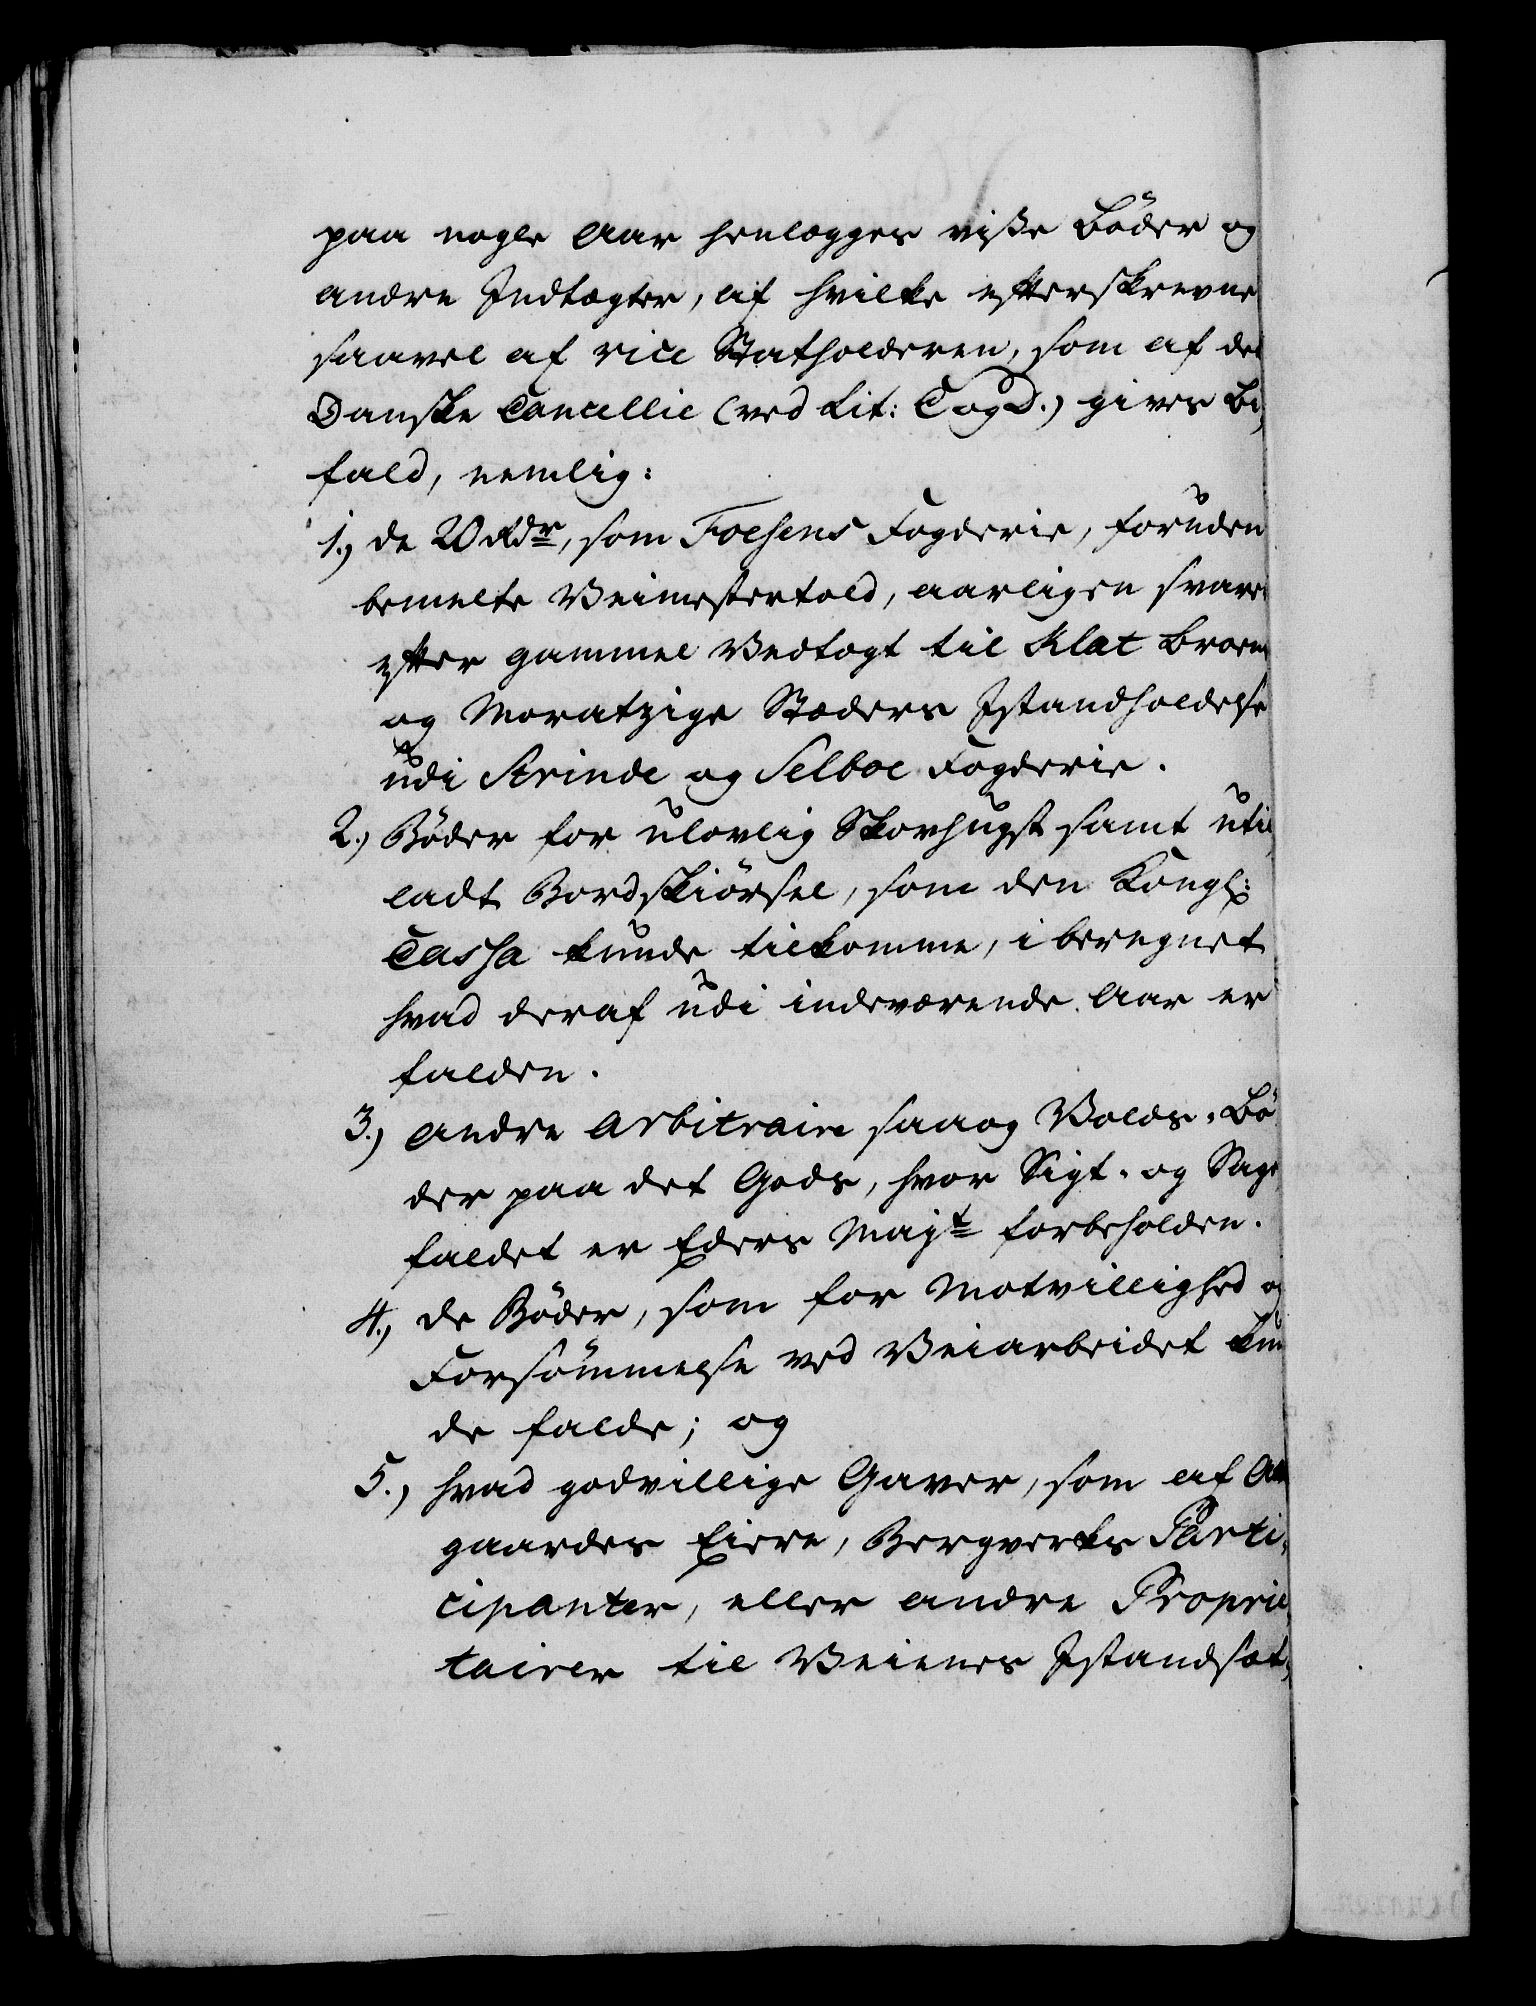 paa nogle Aar henlægges visse Bøder og
andre Indtægter, af hvilke efterskrevne
saavel af vice Statholderen, som af det
Danske Cancellie (ved Lit: C og D.) gives Bi-
fald, nemlig:
1., de 20 Rdr, som Foesens Fogderie, foruden
bemelte Veimestertold, aarligen svarer
efter gammel Vedtægt til Klæt Broens
og Moratzige Stæders Istandholdelse
udi Strinde og Selboe Fogderie.
2.) Bøder for ulovlig Skovhugst samt util-
ladt Bordskiørsel, som den Kongl:
Cassa kunde tilkomme, iberegnet
hvad deraf udi indeværende Aar er
falden.
3.) andre arbitraire saa og Volds-Bø-
der paa det Gods, hvor Sigt- og Sage-
faldet er Eders Mayt forbeholden.
4., de Bøder, som for Motvillighed og
Forsømmelse ved Veiarbeidet kun-
de falde; og
5., hvad godvillige Gaver, som af
gaardes Eiere, Bergverks Parti-
cipanter, eller andre Proprie-
tairer til Veienes Istandsæt-